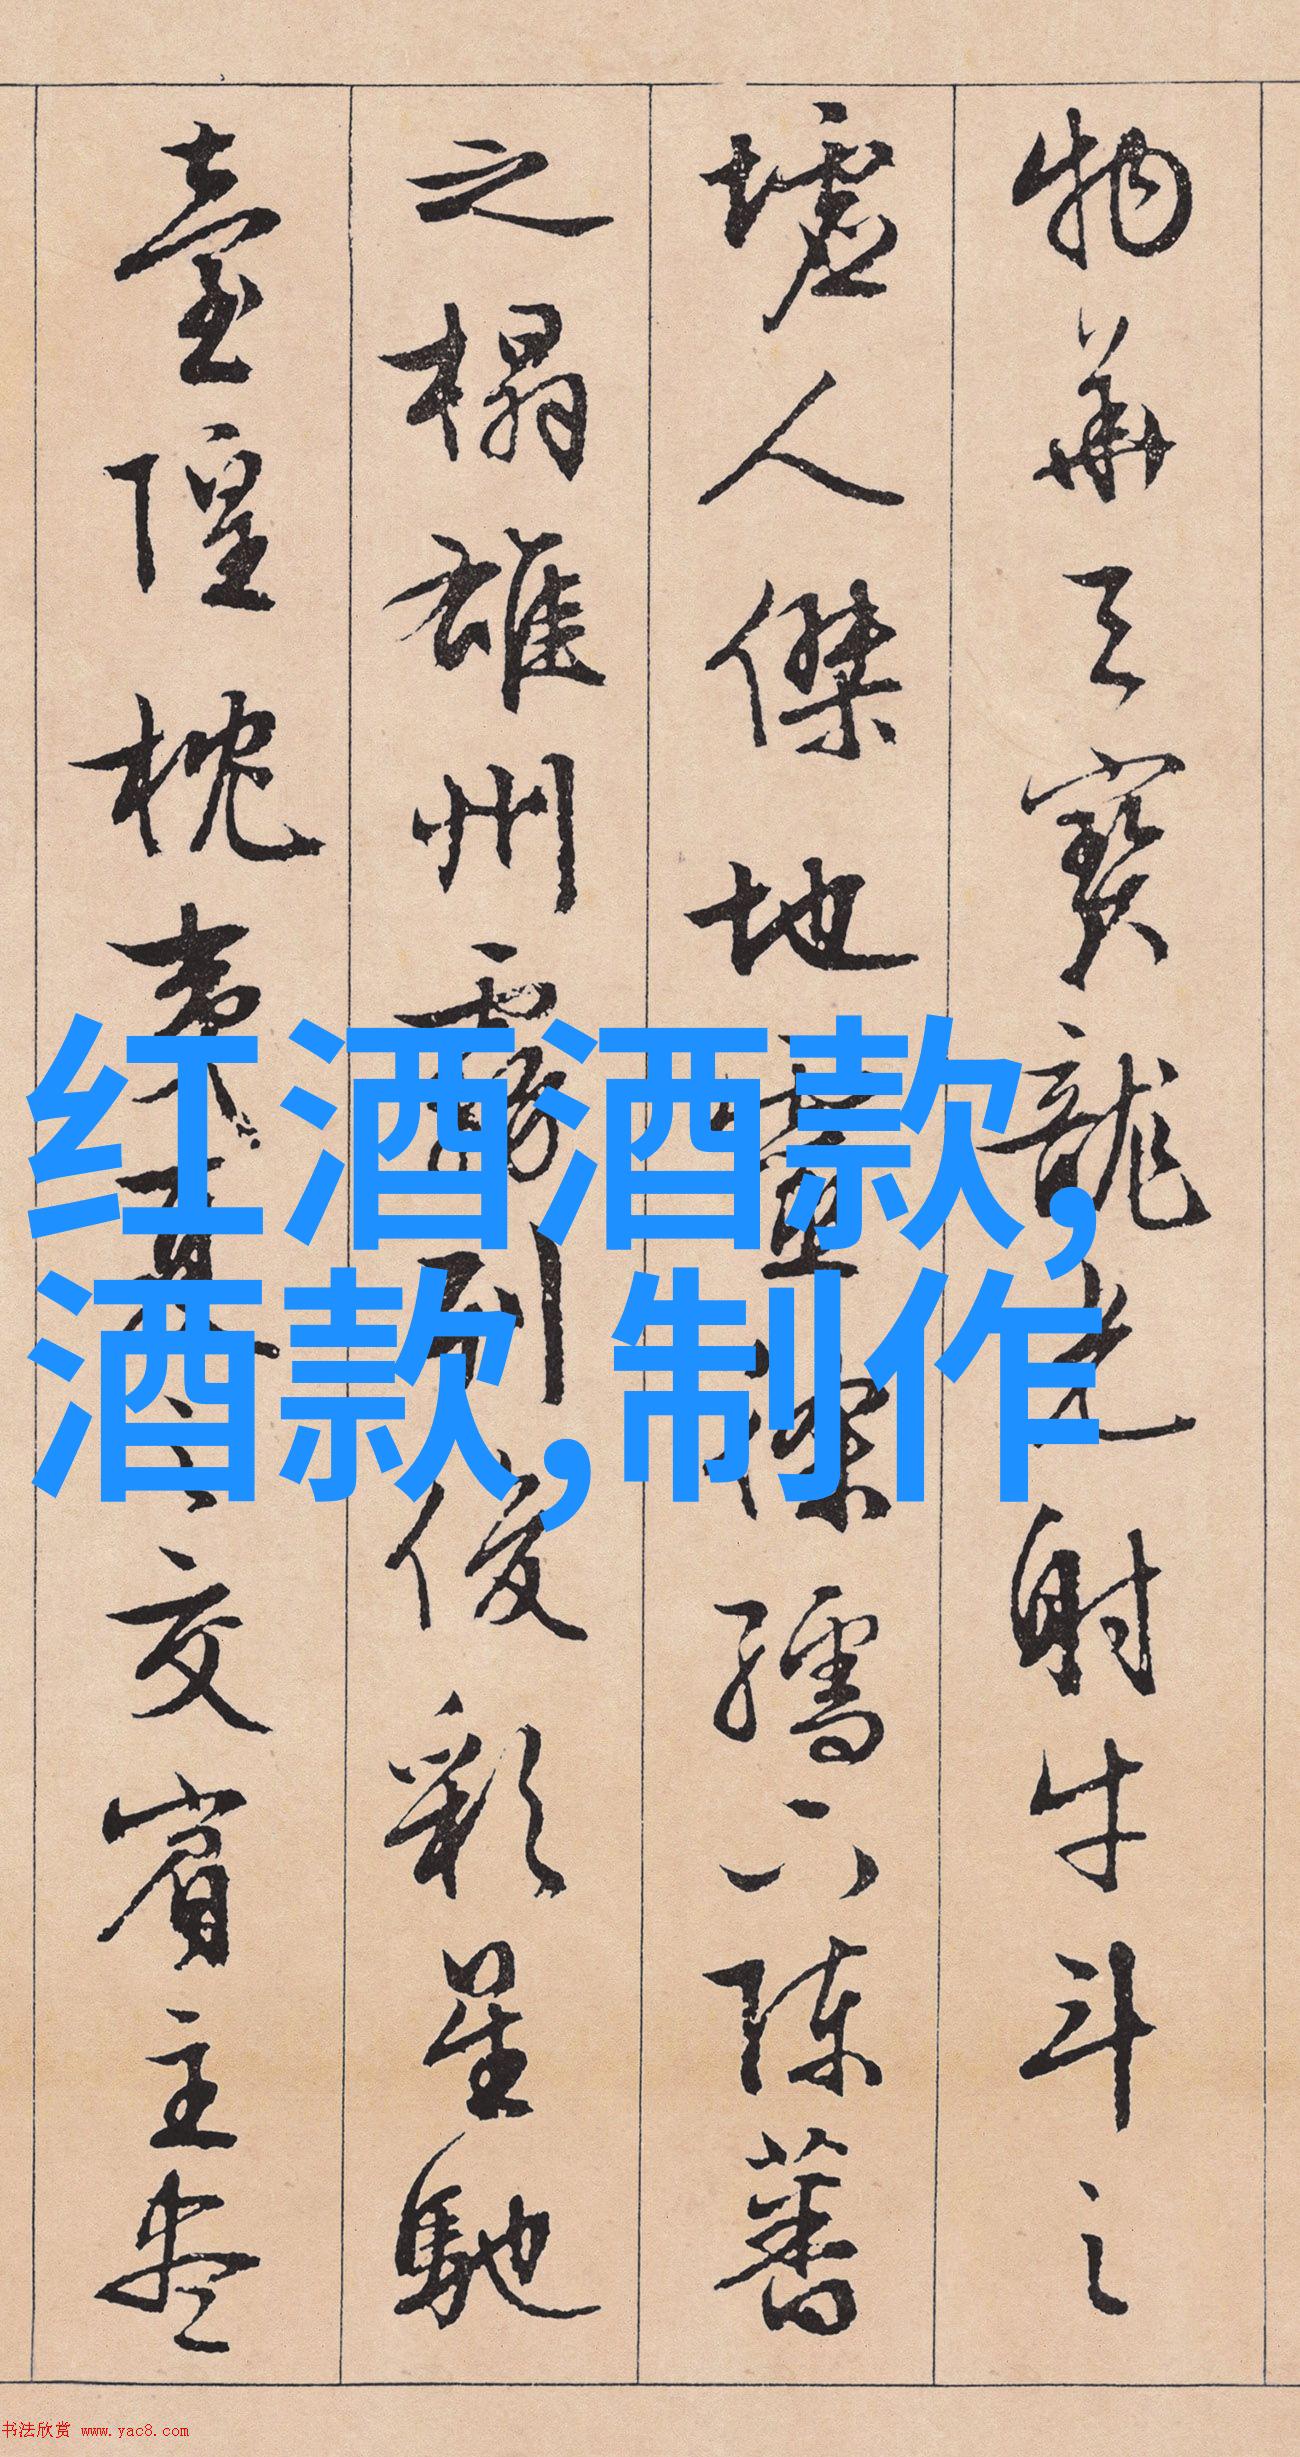 物華天寶龍光射牛斗之
墟人傑地靈徐孺下陳蕃
之榻雄州霧列俊彩星馳
臺隍枕夷夏之交賓主盡
红酒酒款,
酒款,制作
书法欣赏 www.yac8.com